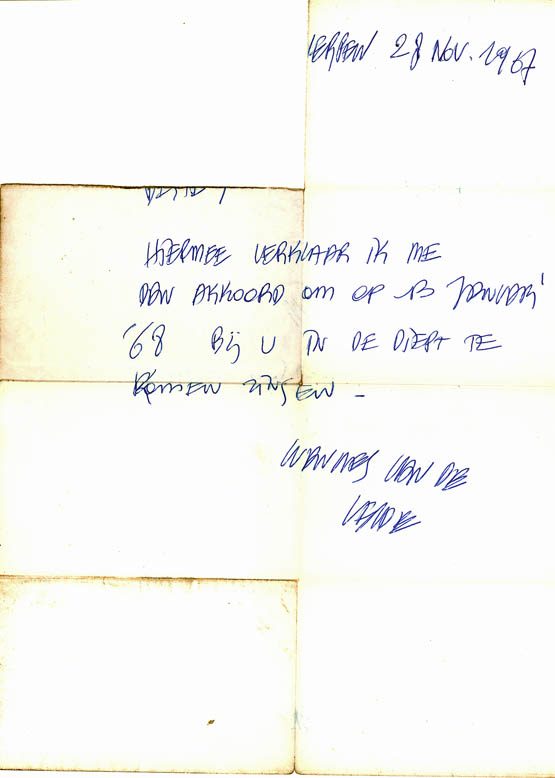 WERPEN 28 NOV. 1967
HIERMEE VERKLAAR IK ME
DAN AKKOORD OM OP 13 JANUARI
'68 BIJ U IN DE DIEPT TE
KOMEN ZINGEN —
WANNES VAN DE
VELDE